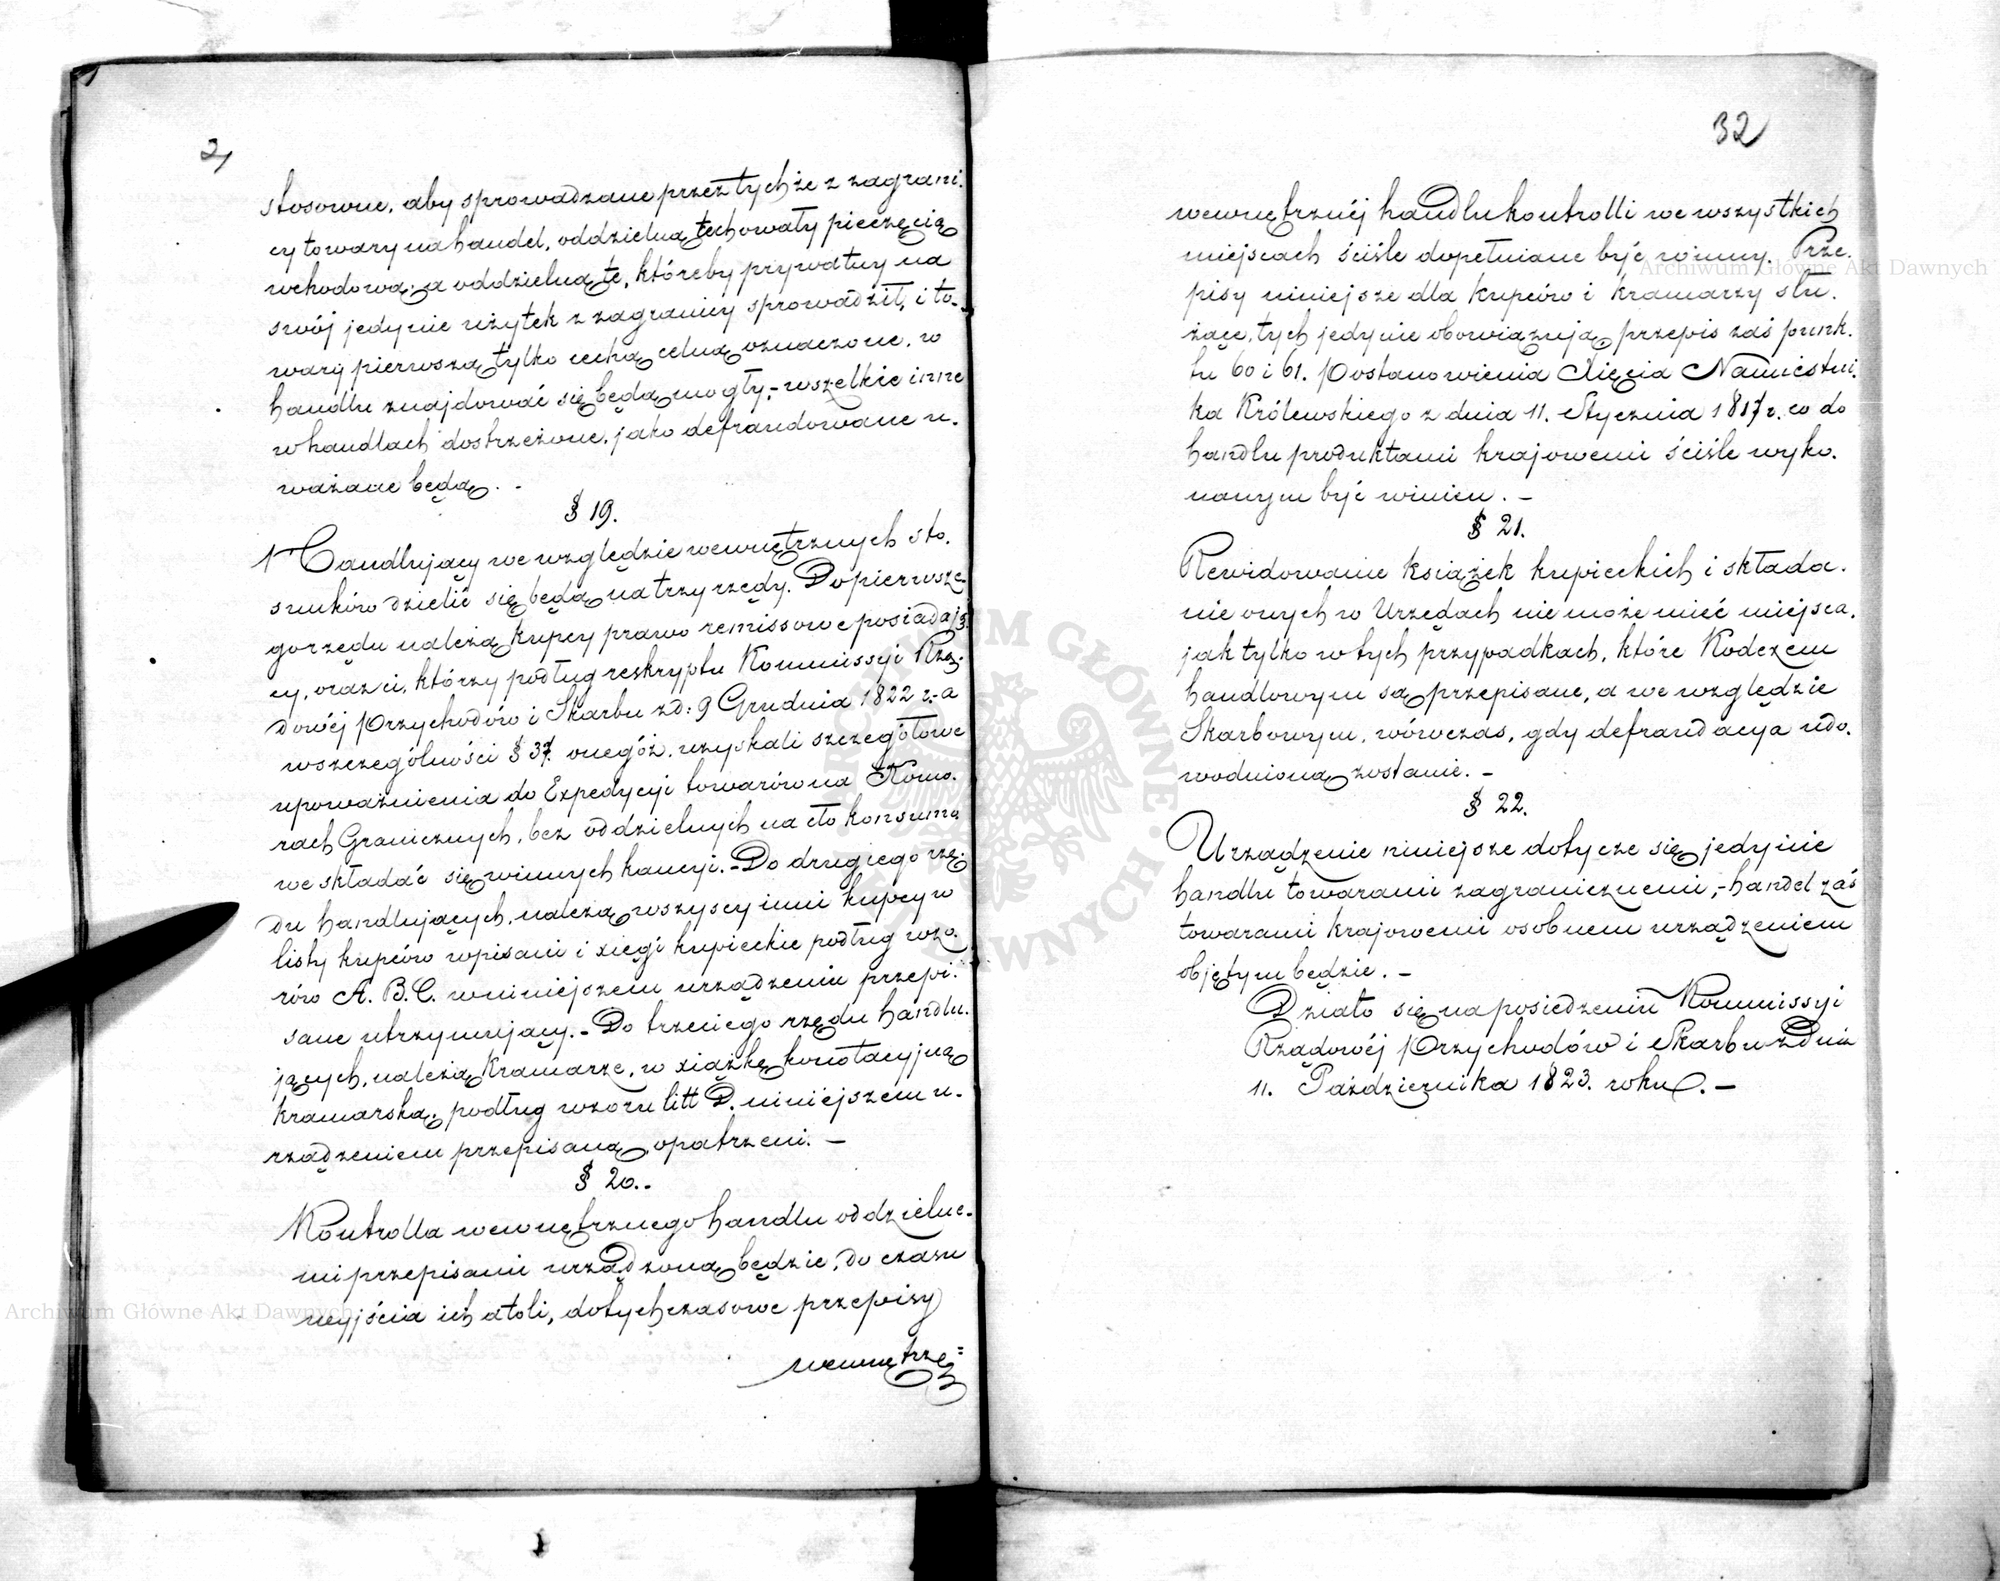 2,
stosowne, aby sprowadzane przez tychże z zagrani.
cy towary na handel, oddzielną cechowały pieczęcią
wchodową; a oddzielną te, któreby prywatny na
swój jedynie użytek z zagranicy sprowadził, i to-
wary pierwszą tylko cechą celną oznaczone, w
handlu znajdować się będą mogły;- wszelkie inne
w handlach dostrzeżone, jako defraudowane u-
ważane będą. -
§ 19.
Handlujący we względzie wewnętrznych sto.
sunków dzielić się będą na trzy rzędy. Do pierwsze-
go rzędu należą kupcy prawo remissowe posiadają.
cy, oraz ci, którzy podług reskryptu Kommissyi Rzą.
dowéj Przychodów i Skarbu z d: 9 Grudnia 1822 r.- a
w szczególności § 37. onegóż, uzyskali szczegółowe
upoważnienia do Expedycyi towarów na Komo.
rach Granicznych, bez oddzielnych na cło konsumo
we składać się winnych kaucyi.- Do drugiego rzę.
du handlujących, należą wszyscy inni kupcy w
listy kupców wpisani i xięgi kupieckie podług wzo.
rów A. B. C. w niniejszem urządzeniu przepi.
sane utrzymujący.- Do trzeciego rzędu handlu.
jących, należą Kramarze, w xiążkę konotacyjną
kramarską, podług wzoru litt D. niniejszem u-
rządzeniem przepisaną, opatrzeni. -
§ 20.-
Kontrolla wewnętrznego handlu oddzielne-
mi przepisami urządzoną będzie, do czasu
wyjścia ich atoli, dotychczasowe przepisy
32
wewnętrznéj handlu kontrolli we wszystkich
miejscach ściśle dopełniane być winny. Prze.
pisy niniejsze dla kupców i kramarzy słu.
żące, tych jedynie obowiązują, przepis zaś punk.
tu 60 i 61. Postanowienia Xięcia Namiestni.
ka Królewskiego z dnia 11. Stycznia 1817 r. co do
handlu produktami krajowemi ściśle wyko.
nanym być winien. -
§ 21.
Rewidowanie książek kupieckich i składa.
nie onych w Urzędach nie może mieć miejsca,
jak tylko w tych przypadkach, które Kodexem
handlowym są przepisane, a we względzie
Skarbowym, wówczas, gdy defraudacya udo.
wodnioną zostanie. -
§ 22.
Urządzenie niniejsze dotycze się jedynie
handlu towarami zagranicznemi,- handel zaś
towarami krajowemi osobnem urządzeniem
objętym będzie. -
Działo się na posiedzeniu Kommissyi
Rządowéj Przychodów i Skarbu z Dnia
11. Października 1823. roku. -
Archiwum Główne Akt Dawnych
Archiwum Główne Akt Dawnych
ARCHIWUM GŁÓWNE AKT DAWNYCH